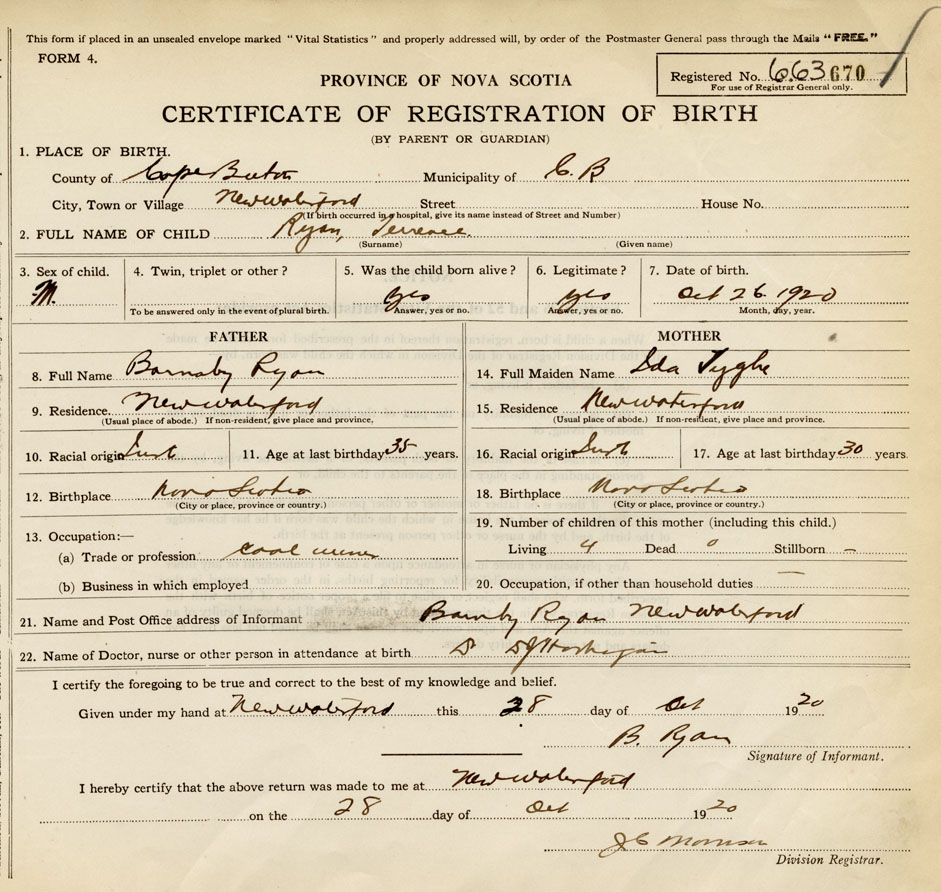 This form if placed in an unsealed envelope marked "Vital Statistics" and properly addressed will, by order of the Postmaster General pass through the Mails "FREE."
FORM 4.
PROVINCE OF NOVA SCOTIA
Registered No. 663 670
For use of Registrar General only.
CERTIFICATE OF REGISTRATION OF BIRTH
(BY PARENT OR GUARDIAN)
1. PLACE OF BIRTH.
County of Cape Breton Municipality of C. B
City, Town or Village New Waterford Street House No.
(If birth occurred in hospital, give its name instead of Street and Number)
2. FULL NAME OF CHILD Ryan, Terrence
(Surname) (Given name)
3. Sex of child. 4. Twin, triplet or other? 5. Was the child born alive? 6. Legitimate? 7. Date of birth.
M. yes yes Oct 26 1920
To be answered only in the event of plural birth. Answer, yes or no. Answer, yes or no. Month, day, year.
FATHER MOTHER
8. Full Name Barnaby Ryan 14. Full Maiden Name Ida Tyghe
9. Residence. New Waterford 15. Residence New Waterford
(Usual place of abode.) If non-resident, give place and province. (Usual place of abode.) If non-resident, give place and province.
10. Racial origin Irish 11. Age at last birthday 35 years. 16. Racial origin Irish 17. Age at last birthday 30 years.
12. Birthplace Nova Scotia 18. Birthplace Nova Scotia
(City or place, province or country.) (City or place, province or country.)
13. Occupation:— 19. Number of children of this mother (including this child.)
(a) Trade or profession coal miner Living 4 Dead 0 Stillborn —
(b) Business in which employed 20. Occupation, if other than household duties —
21. Name and Post Office address of Informant Barnby Ryan New Waterford
22. Name of Doctor, nurse or other person in attendance at birth Dr
I certify the foregoing to be true and correct to the best of my knowledge and belief.
Given under my hand at New Waterford this 28 day of Oct 1920
B. Ryan
Signature of Informant.
I hereby certify that the above return was made to me at New Waterford
on the 28 day of Oct 1920
J C Morrison
Division Registrar.